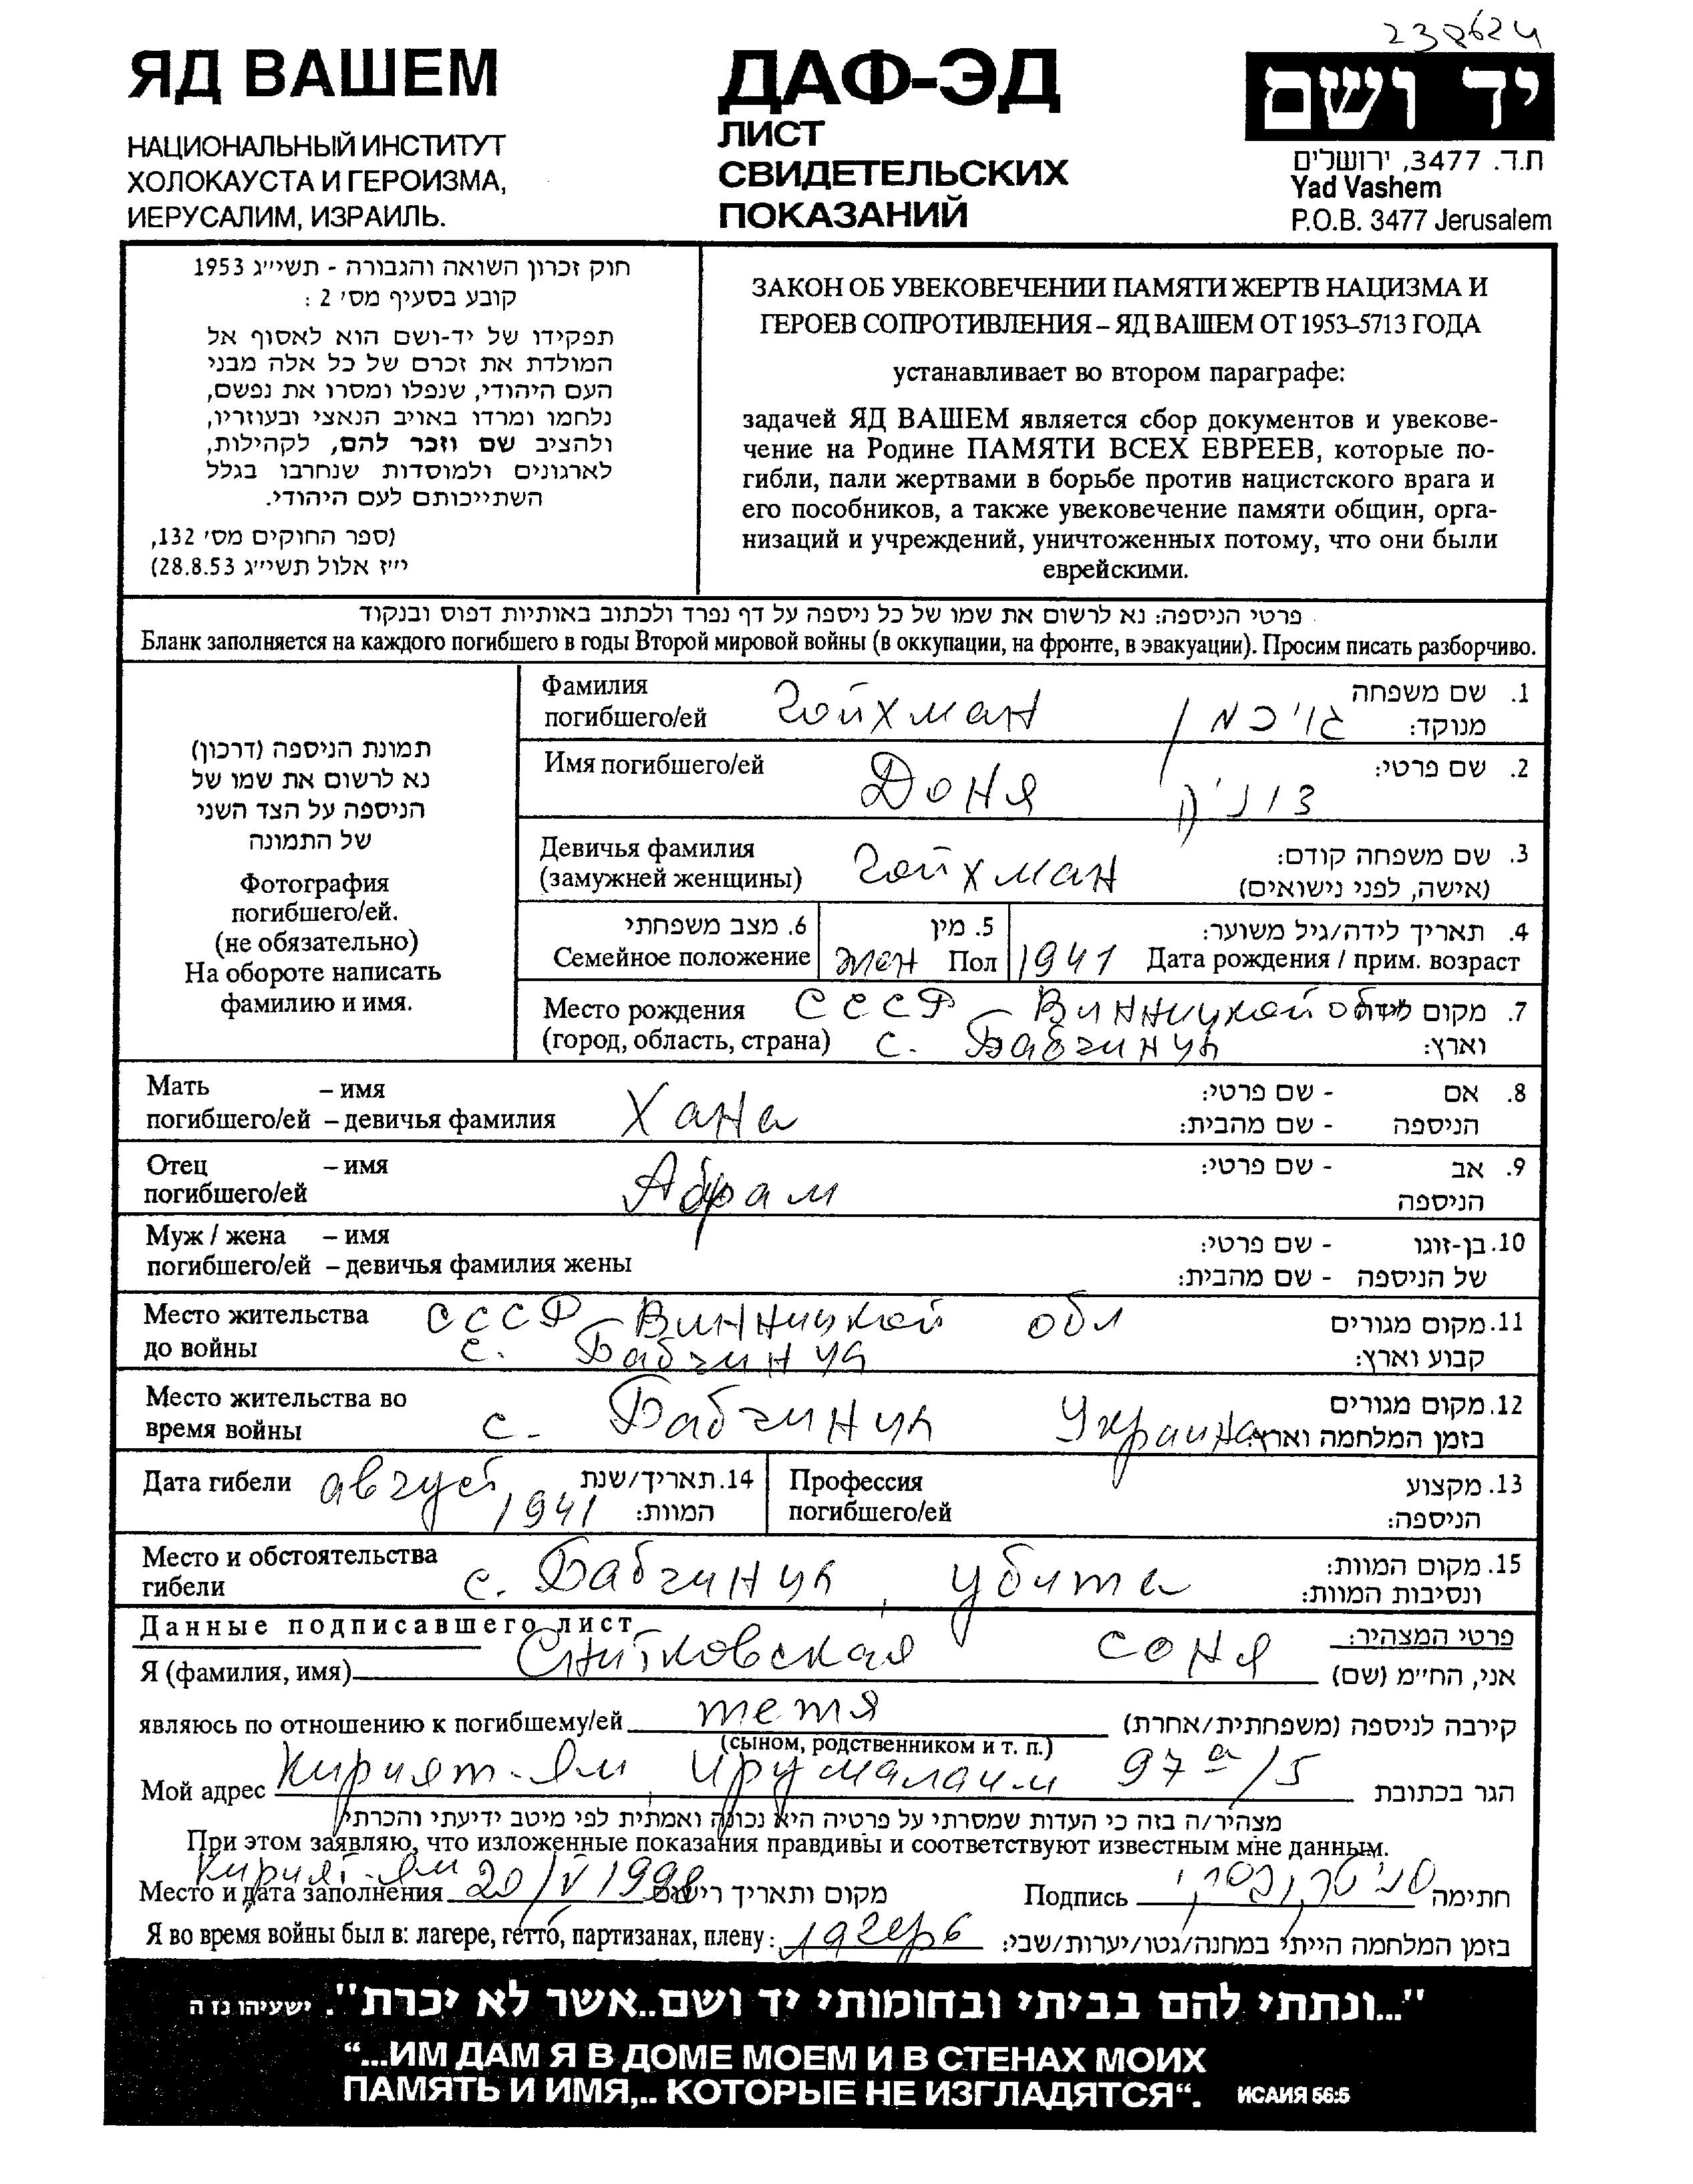 238624
ЯД ВАШЕМ
НАЦИОНАЛЬНЫЙ ИНСТИТУТ
ХОЛОКАУСТА И ГЕРОИЗМА,
ИЕРУСАЛИМ, ИЗРАИЛЬ.
ДАФ-ЭД
ЛИСТ
СВИДЕТЕЛЬСКИХ
ПОКАЗАНИЙ
יד ושם
ת.ד. 3477, ירושלים
Yad Vashem
P.O.B. 3477 Jerusalem
חוק זכרון השואה והגבורה - תשי״ג 1953
קובע בסעיף מס׳ 2 :
תפקידו של יד-ושם הוא לאסוף אל
המולדת את זכרם של כל אלה מבני
העם היהודי, שנפלו ומסרו את נפשם,
נלחמו ומרדו באויב הנאצי ובעוזריו,
ולהציב שם וזכר להם, לקהילות,
לארגונים ולמוסדות שנחרבו בגלל
השתייכותם לעם היהודי.
(ספר החוקים מס׳ 132,
י״ז אלול תשי״ג 28.8.53)
ЗАКОН ОБ УВЕКОВЕЧЕНИИ ПАМЯТИ ЖЕРТВ НАЦИЗМА И
ГЕРОЕВ СОПРОТИВЛЕНИЯ – ЯД ВАШЕМ ОТ 1953–5713 ГОДА
устанавливает во втором параграфе:
задачей ЯД ВАШЕМ является сбор документов и увекове-
чение на Родине ПАМЯТИ ВСЕХ ЕВРЕЕВ, которые по-
гибли, пали жертвами в борьбе против нацистского врага и
его пособников, а также увековечение памяти общин, орга-
низаций и учреждений, уничтоженных потому, что они были
еврейскими.
פרטי הניספה: נא לרשום את שמו של כל ניספה על דף נפרד ולכתוב באותיות דפוס ובנקוד
Бланк заполняется на каждого погибшего в годы Второй мировой войны (в оккупации, на фронте, в эвакуации). Просим писать разборчиво.
תמונת הניספה (דרכון)
נא לרשום את שמו של
הניספה על הצד השני
של התמונה
Фотография
погибшего/ей.
(не обязательно)
На обороте написать
фамилию и имя.
Фамилия
погибшего/ей Гойхман גויכמן
1. שם משפחה
מנוקד:
Имя погибшего/ей Доня דוניה 2. שם פרטי:
Девичья фамилия
(замужней женщины) Гойхман
3. שם משפחה קודם:
(אישה, לפני נישואים)
6. מצב משפחתי
Семейное положение
5. מין
жен Пол
4. תאריך לידה/גיל משוער:
1941 Дата рождения / прим. возраст
Место рождения СССР Винницкой обл 7. מקום לידה
(город, область, страна) с. Бабчинцы וארץ:
Мать – имя 8. אם - שם פרטי:
погибшего/ей – девичья фамилия Хана הניספה - שם מהבית:
Отец – имя 9. אב - שם פרטי:
погибшего/ей Абрам הניספה
Муж / жена – имя 10. בן-זוגו - שם פרטי:
погибшего/ей – девичья фамилия жены של הניספה - שם מהבית:
Место жительства СССР Винницкой обл 11. מקום מגורים
до войны с. Бабчинцы קבוע וארץ:
Место жительства во 12. מקום מגורים
время войны с. Бабчинцы Украина בזמן המלחמה וארץ:
Дата гибели август 1941 14. תאריך/שנת
המוות:
Профессия 13. מקצוע
погибшего/ей הניספה:
Место и обстоятельства 15. מקום המוות:
гибели с. Бабчинцы, убита ונסיבות המוות:
Данные подписавшего лист פרטי המצהיר:
Я (фамилия, имя) Снитковская Соня אני, הח״מ (שם)
являюсь по отношению к погибшему/ей тетя קירבה לניספה (משפחתית/אחרת)
(сыном, родственником и т. п.)
Мой адрес Кирият-Ям, Ирушалаим 97а/5 הגר בכתובת
מצהיר/ה בזה כי העדות שמסרתי על פרטיה היא נכונה ואמתית לפי מיטב ידיעתי והכרתי
При этом заявляю, что изложенные показания правдивы и соответствуют известным мне данным.
Место и дата заполнения Кирият-Ям 20/V 1998 מקום ותאריך רישום Подпись חתימה
Я во время войны был в: лагере, гетто, партизанах, плену: лагерь בזמן המלחמה הייתי במחנה/גטו/יערות/שבי:
"...ונתתי להם בביתי ובחומותי יד ושם..אשר לא יכרת". ישעיהו נז ה
“...ИМ ДАМ Я В ДОМЕ МОЕМ И В СТЕНАХ МОИХ
ПАМЯТЬ И ИМЯ,.. КОТОРЫЕ НЕ ИЗГЛАДЯТСЯ“. ИСАИЯ 56:5